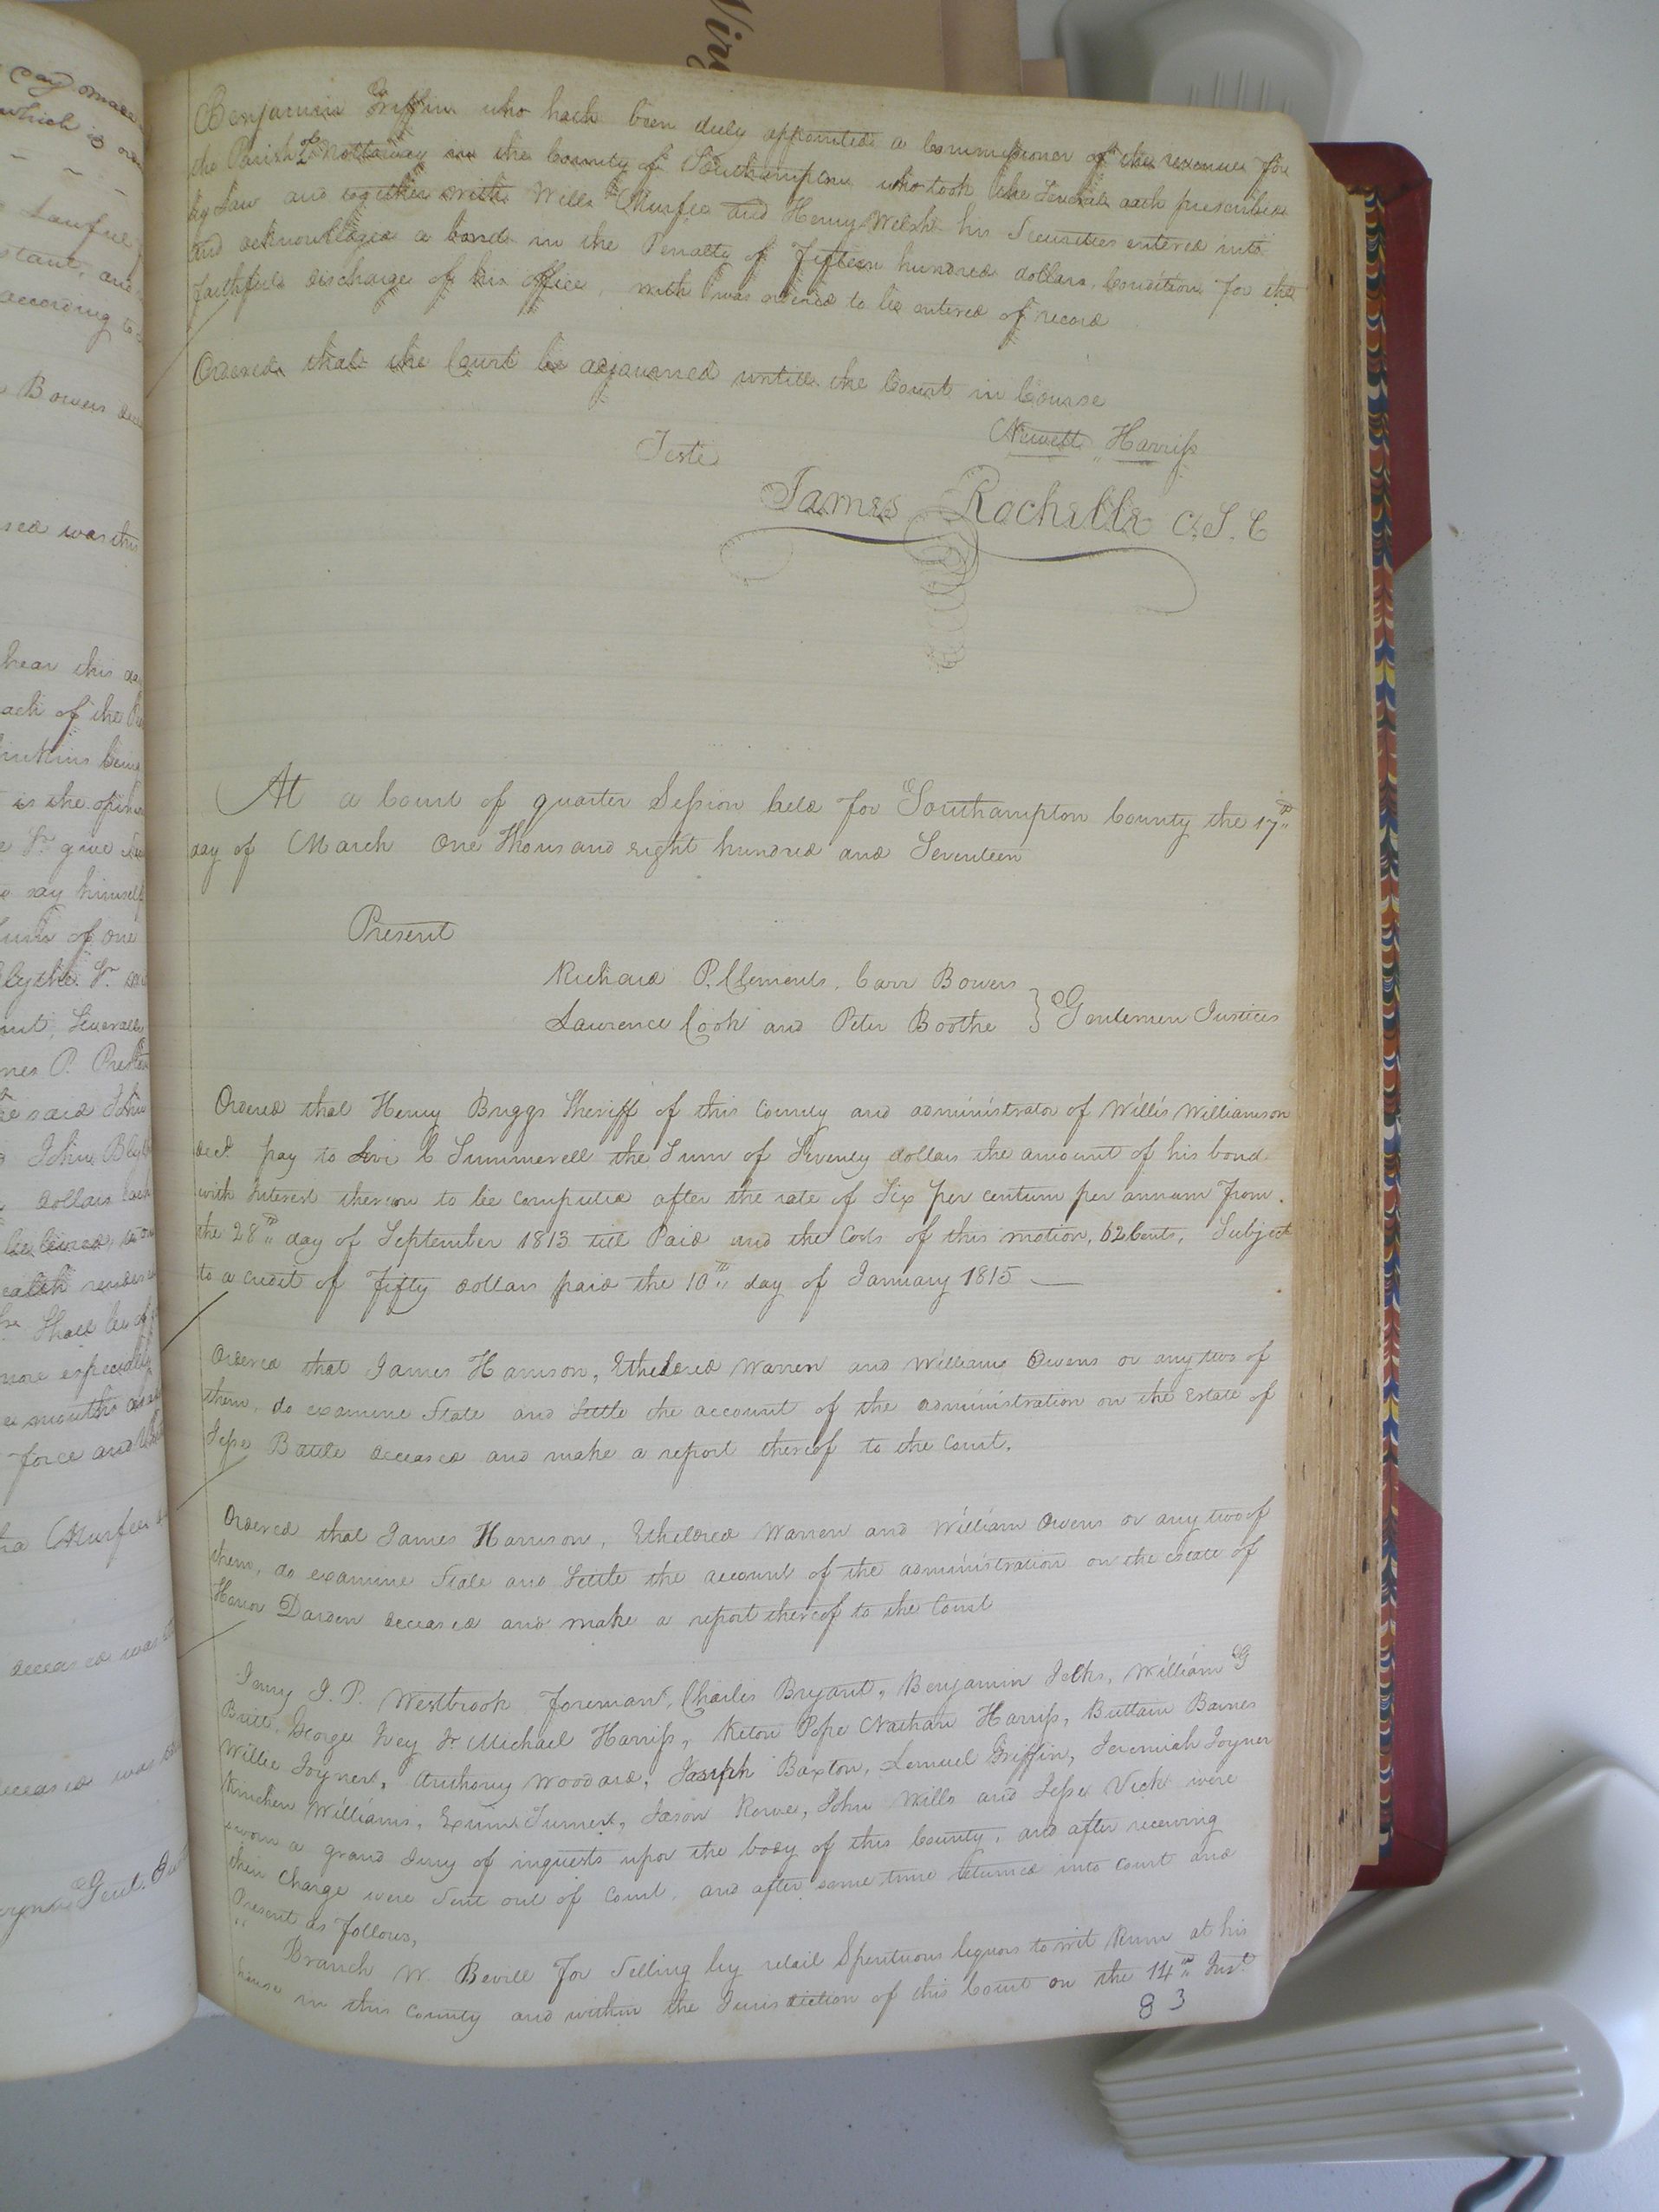 Benjamin Griffin who hath been duly appointed a Commissioner of the revenue for
the Parish of Nottoway in the County of Southampton who took the Several oath prescribed
by Law and together with Wills Murfee and Henry Welsh his Securities entered into
and acknowledged a bond in the Penalty of Fifteen hundred dollars, Condition for the
faithful discharge of his office, which was ordered to be entered of record
Ordered that the Court be adjourned untill the Court in Course
Newitt Harriss
Teste
James Rochelle C.S.C
At a Court of quarter Session held for Southampton County the 17th
day of March One Thousand eight hundred and Seventeen
Present
Richard P. Clements, Carr Bowers
Lawrence Cook and Peter Boothe } Gentlemen Justices
Ordered that Henry Briggs Sheriff of this County and administrator of Willis Williamson
decd. pay to Levi C Summerell the Sum of Seventy dollars the amount of his bond
with Interest thereon to be computed after the rate of Six per centum per annum from
the 28th day of September 1813 till Paid and the Costs of this motion, 62 Cents, Subject
to a credit of Fifty dollars paid the 10th day of January 1815
Ordered that James Harrison, Etheldred Warren and Williams Owens or any two of
them, do examine State and Settle the account of the administration on the Estate of
Jesse Battle deceased and make a report thereof to the Court,
Ordered that James Harrison, Etheldred Warren and William Owens or any two of
them, do examine State and Settle the account of the administration on the estate of
Darden deceased and make a report thereof to the Court
J. P. Westbrook foreman, Charles Bryant, Benjamin William G
Britt, George Ivey Sr Michael Harriss, Keton Pope Nathan Harriss, Buttain Barnes
Willie Joyner, Anthony Woodard, Joseph Baxton, Lemuel Griffin, Jeremiah Joyner
Kinchen Williams, Exum Turner, Jason Rowe, John Wills and Jesse Vick were
sworn a grand Jury of inquests upon the body of this County, and after receiving
their Charge were Sent out of Court, and after some time returned into Court and
Present as follows,
" Branch W. Bevill for Selling by retail Sperituous liquors to wit Rum at his
house in this County and within the Jurisdiction of this Court on the 14th Inst.
83